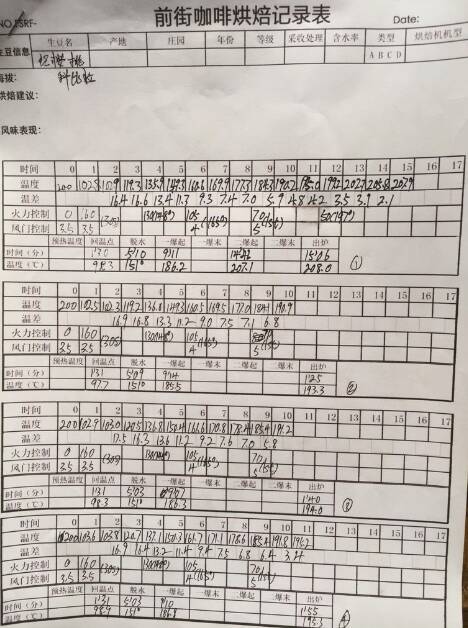 前街咖啡烘焙记录表
Date:
生豆信息 生豆名 产地 庄园 年份 等级 采收处理 含水率 类型 烘焙机机型
A B C D
海拔:
烘焙建议:
风味表现:
时间 0 1 2 3 4 5 6 7 8 9 10 11 12 13 14 15 16 17
温度 200 102.5 102.9 119.3 135.9 149.3 160.6 169.9 177.3 184.3 190.2
温差 16.4 16.6 13.4 11.3 9.3 7.4 7.0 5.9 4.8 4.2 3.5 3.9 2.1
火力控制 0 160 130(148°) 105 70 50(197°)
风门控制 3.5 3.5 (305) 4 (165°) 5 (186)
预热温度 回温点 脱水 一爆起 一爆末 二爆起 二爆末 出炉
时间(分) 1'30 5'10 9'11 15'06
温度(℃) 98.3 151° 186.2 207.1 208.0
①
时间 0 1 2 3 4 5 6 7 8 9 10 11 12 13 14 15 16 17
温度 200 102.5 102.3 119.2 136.0 149.3 160.5 169.5 177.0 184.1 190.9
温差 16.9 16.8 13.3 11.2 9.0 7.5 7.1 6.8
火力控制 0 160 130(148°) 105
风门控制 3.5 3.5 (305) 4 (165°) 5
预热温度 回温点 脱水 一爆起 一爆末 二爆起 二爆末 出炉
时间(分) 1'31 5'09
温度(℃) 97.7 151° 185.5 193.3
②
时间 0 1 2 3 4 5 6 7 8 9 10 11 12 13 14 15 16 17
温度 200 102.9 103.0 120.5 136.8 150.4 161.6 170.8 178.4 185.4 191.2
温差 17.5 16.3 13.6 11.2 9.2 7.6 7.0 5.8
火力控制 0 160 130(148°) 105 70
风门控制 3.5 3.5 (305) 4 (165°) 5
预热温度 回温点 脱水 一爆起 一爆末 二爆起 二爆末 出炉
时间(分) 1'31 5'03 9'07 1'40
温度(℃) 98.3 151° 186.3 194.0
③
时间 0 1 2 3 4 5 6 7 8 9 10 11 12 13 14 15 16 17
温度 200 103.6 103.8 120.7 137.1 150.3 161.7 171.1 178.6 185.4 191.8
温差 16.9 16.4 13.2 11.4 9.4 7.5 6.8 6.4
火力控制 0 160 105 70
风门控制 3.5 3.5 (305) 4 (165°) 5
预热温度 回温点 脱水 一爆起 一爆末 二爆起 二爆末 出炉
时间(分) 1'31 5'03 9'10 1'55
温度(℃) 98.9 151° 186.8 195.3
④